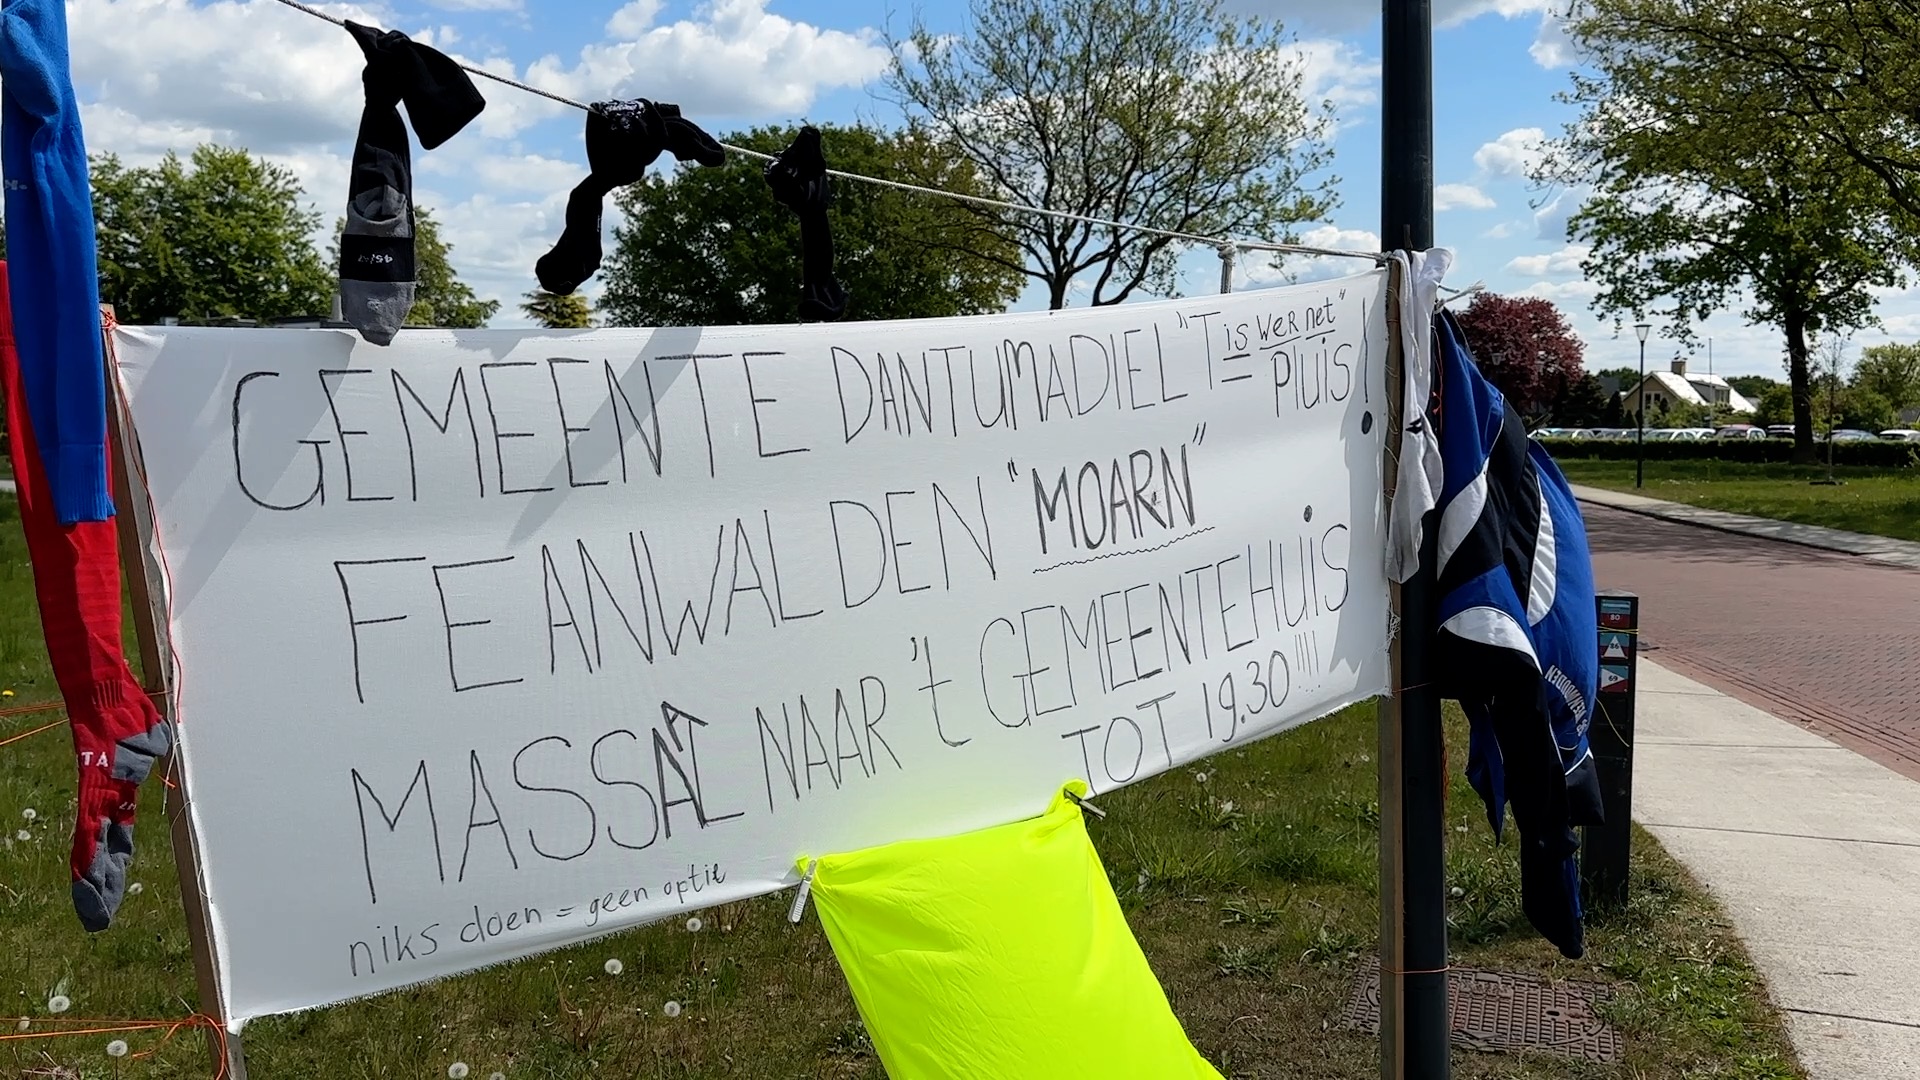 GEMEENTE DANTUMADIEL "T is wer net"
PLUIS!
FEANWALDEN "MOARN"
MASSAAL NAAR 't GEMEENTEHUIS
TOT 19.30!!!!
niks doen = geen optie
45/47
TA
80
86
69